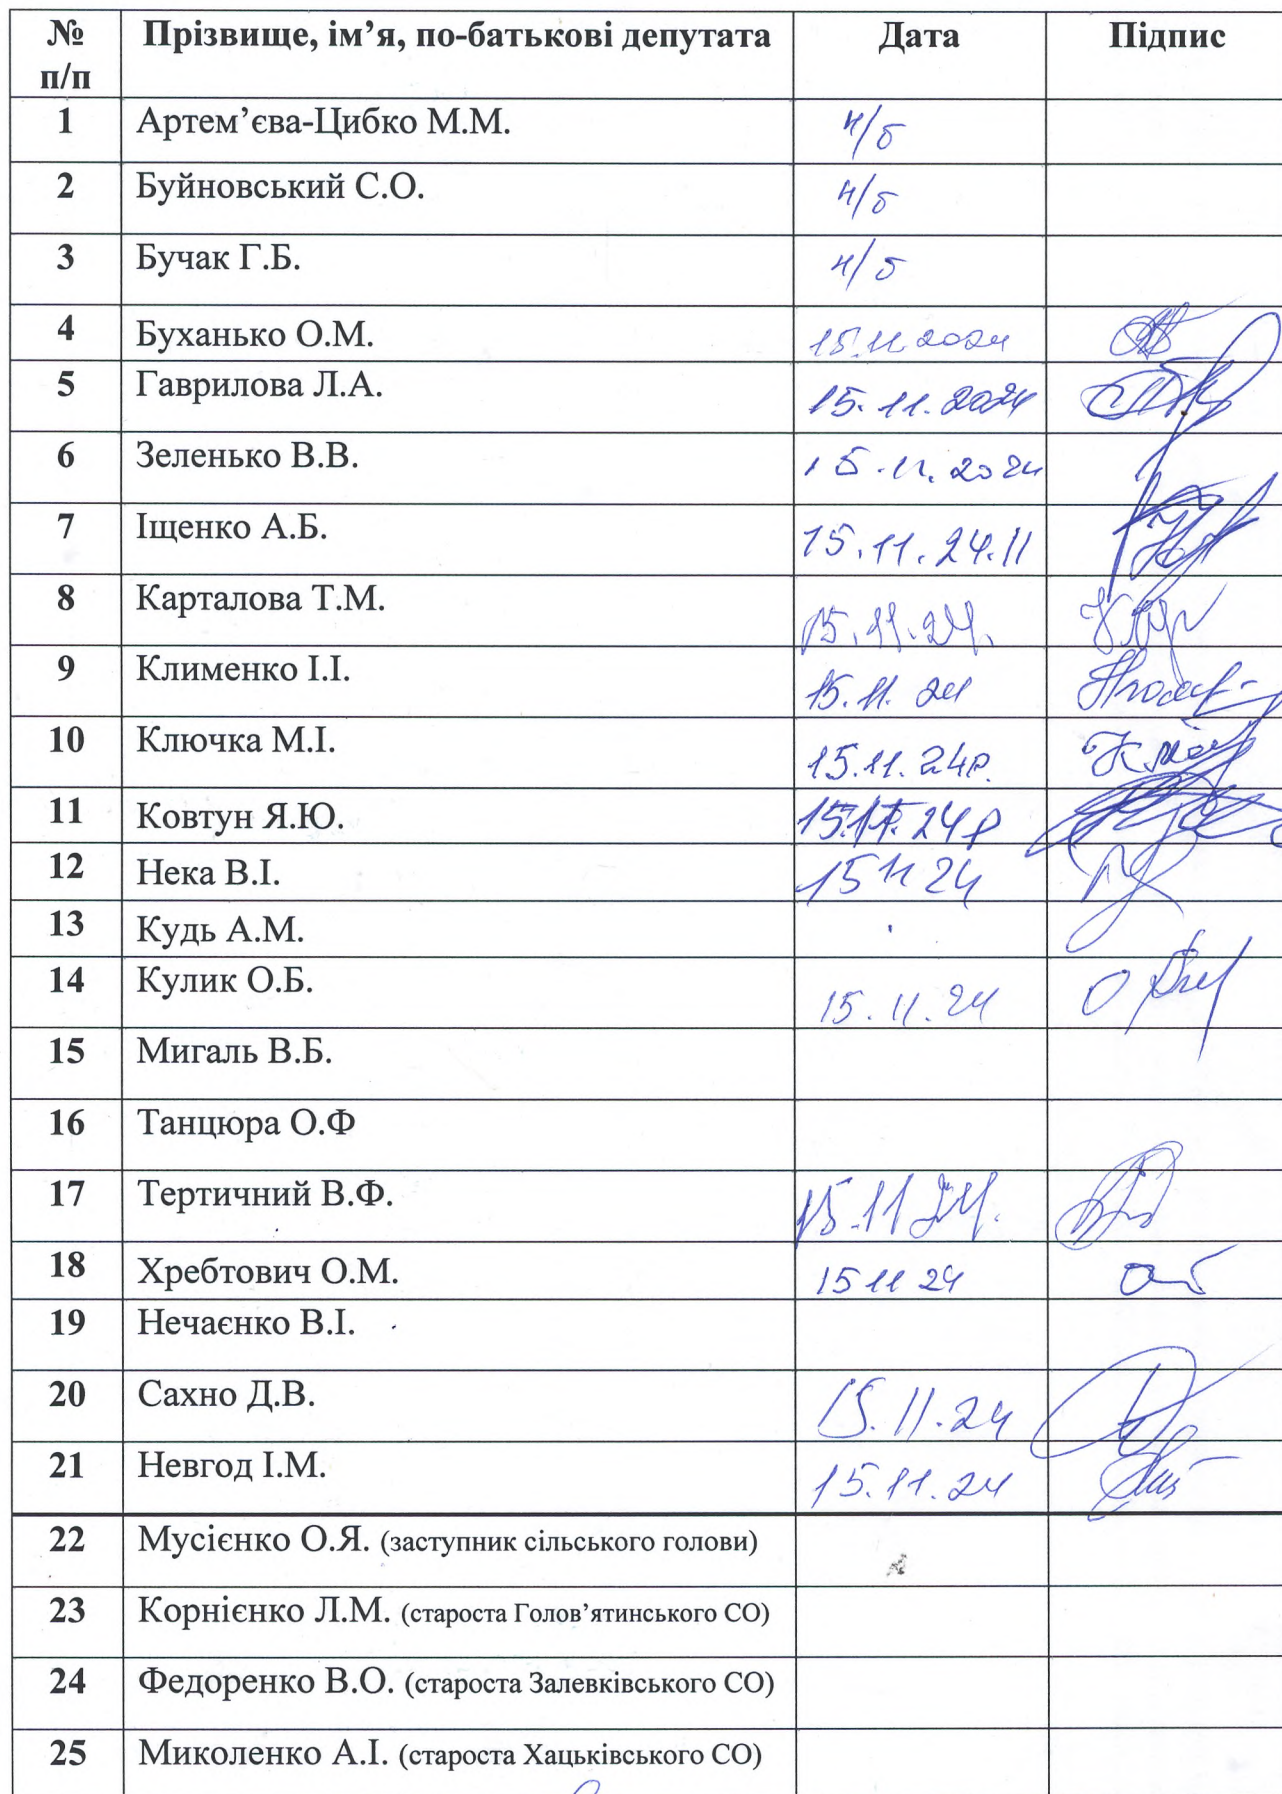 № п/п Прізвище, ім’я, по-батькові депутата Дата Підпис
1 Артем’єва-Цибко М.М. н/б
2 Буйновський С.О. н/б
3 Бучак Г.Б. н/б
4 Буханько О.М. 15.11.2024
5 Гаврилова Л.А. 15.11.2024
6 Зеленько В.В. 15.11.2024
7 Іщенко А.Б. 15.11.24.11
8 Карталова Т.М. 15.11.24.
9 Клименко І.І. 15.11.24
10 Ключка М.І. 15.11.24р.
11 Ковтун Я.Ю. 15.11.24р
12 Нека В.І. 15 11 24
13 Кудь А.М.
14 Кулик О.Б. 15.11.24
15 Мигаль В.Б.
16 Танцюра О.Ф
17 Тертичний В.Ф. 15.11 24.
18 Хребтович О.М. 15 11 24
19 Нечаєнко В.І.
20 Сахно Д.В. 15.11.24
21 Невгод І.М. 15.11.24
22 Мусієнко О.Я. (заступник сільського голови)
23 Корнієнко Л.М. (староста Голов’ятинського СО)
24 Федоренко В.О. (староста Залевківського СО)
25 Миколенко А.І. (староста Хацьківського СО)